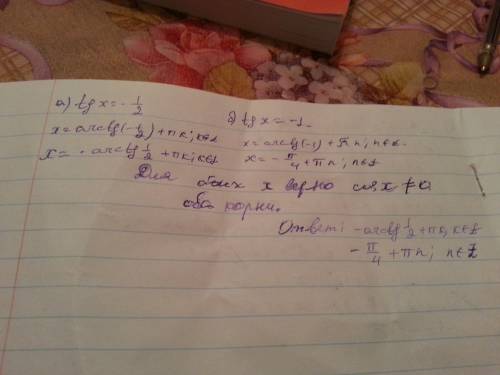 а) tg x = -1/2
x = arctg(-1/2) + πk; k∈Z
x = - arctg 1/2 + πk; k∈Z
б) tg x = -1.
x = arctg(-1) + πn; n∈Z.
x = - π/4 + πn; n∈Z
Для обоих x верно cos x ≠ 0
оба корни.
Ответ: - arctg 1/2 + πk, k∈Z
- π/4 + πn; n∈Z